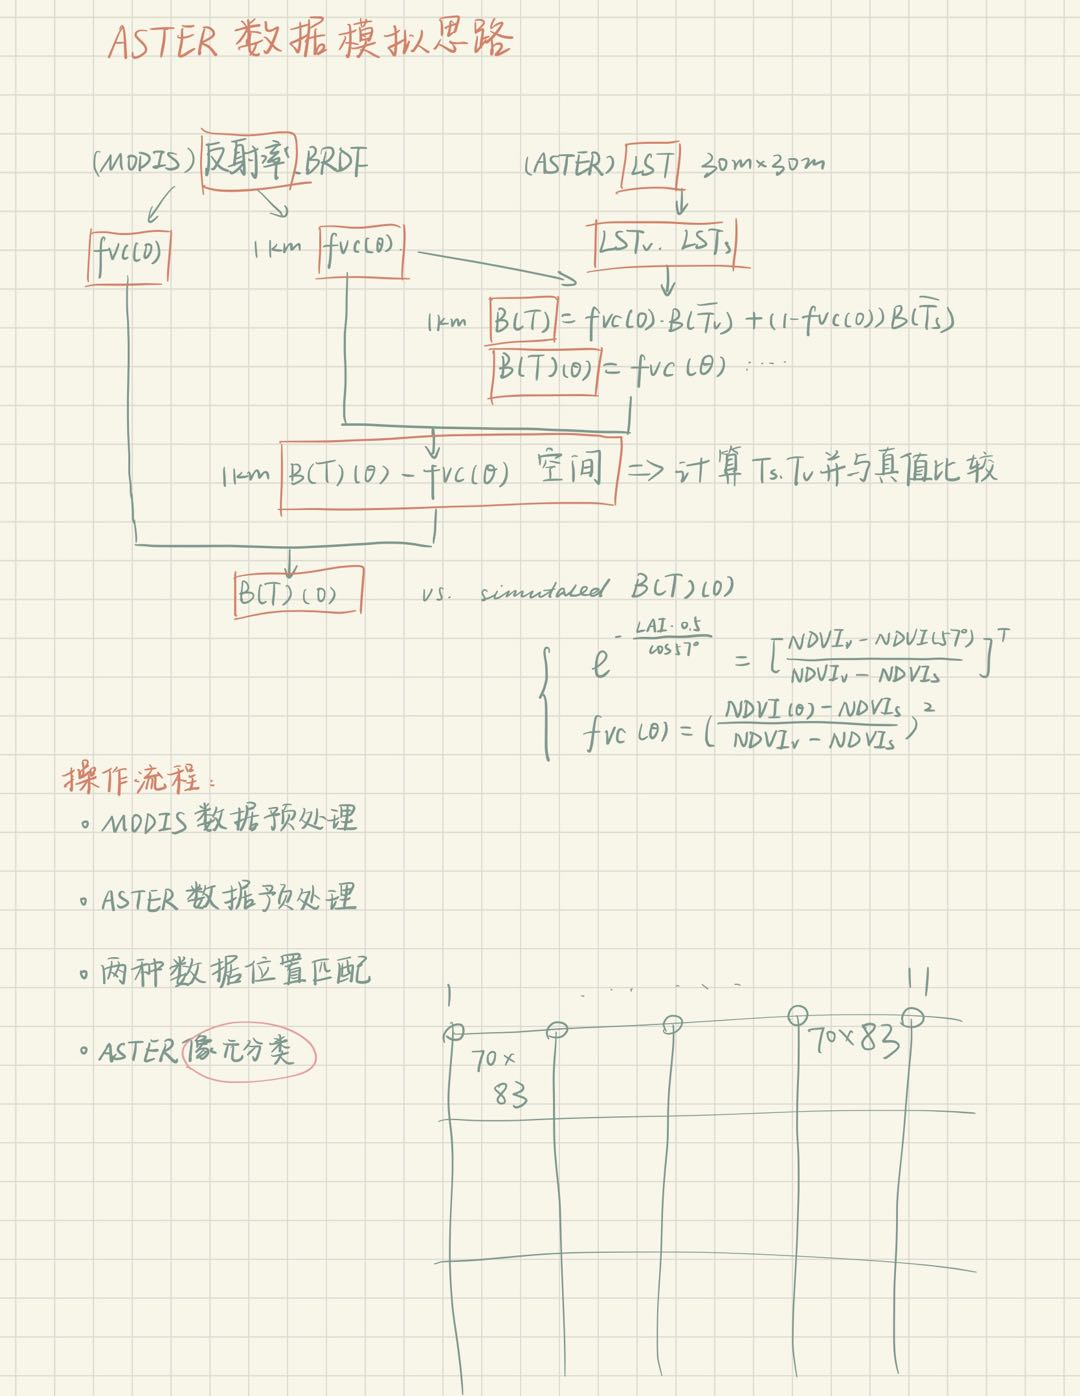 ASTER 数据模拟思路
(MODIS) 反射率. BRDF
(ASTER) LST 30m×30m
fvc(0)
1km fvc(θ).
LSTv. LSTs
1km B(T) = fvc(0)·B(T̅v) + (1-fvc(0)) B(T̅s)
B(T)(θ) = fvc(θ) ·····
1km B(T)(θ) - fvc(θ) 空间 => 计算 Ts. Tv 并与真值比较
B(T)(0) vs. simutaled B(T)(0)
e^(-LAI·0.5/cos57°) = [(NDVIv - NDVI(57°))/(NDVIv - NDVIs)]^T
fvc(θ) = ((NDVI(θ) - NDVIs)/(NDVIv - NDVIs))^2
操作流程:
• MODIS 数据预处理
• ASTER 数据预处理
• 两种数据位置匹配
• ASTER 像元分类
1 ······ 11
70×83
70×
83